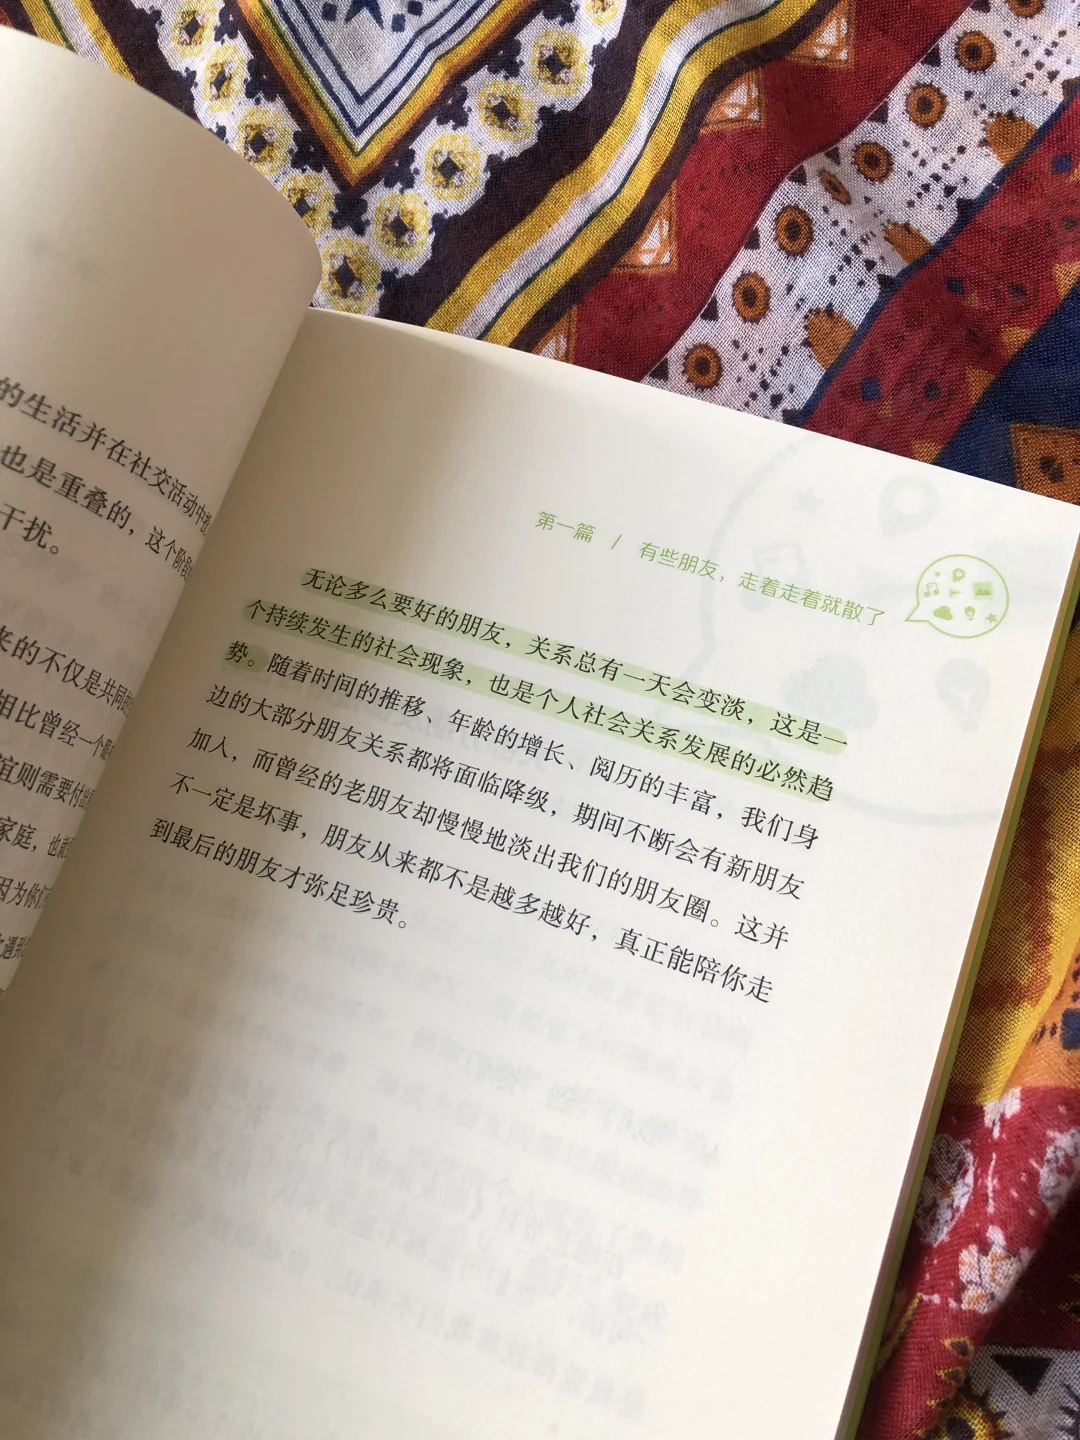 的生活并在社交活动中
也是重叠的，这个阶段
干扰。
来的不仅是共同
相比曾经一个
谊则需要付出
家庭，也就
因为你们
第一篇 / 有些朋友，走着走着就散了
无论多么要好的朋友，关系总有一天会变淡，这是一
个持续发生的社会现象，也是个人社会关系发展的必然趋
势。随着时间的推移、年龄的增长、阅历的丰富，我们身
边的大部分朋友关系都将面临降级，期间不断会有新朋友
加人，而曾经的老朋友却慢慢地淡出我们的朋友圈。这并
不一定是坏事，朋友从来都不是越多越好，真正能陪你走
到最后的朋友才弥足珍贵。